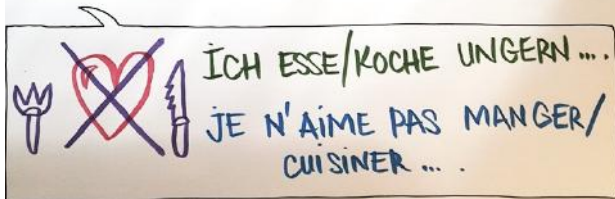 ICH ESSE/KOCHE UNGERN ....
JE N'AIME PAS MANGER/
CUISINER ... .